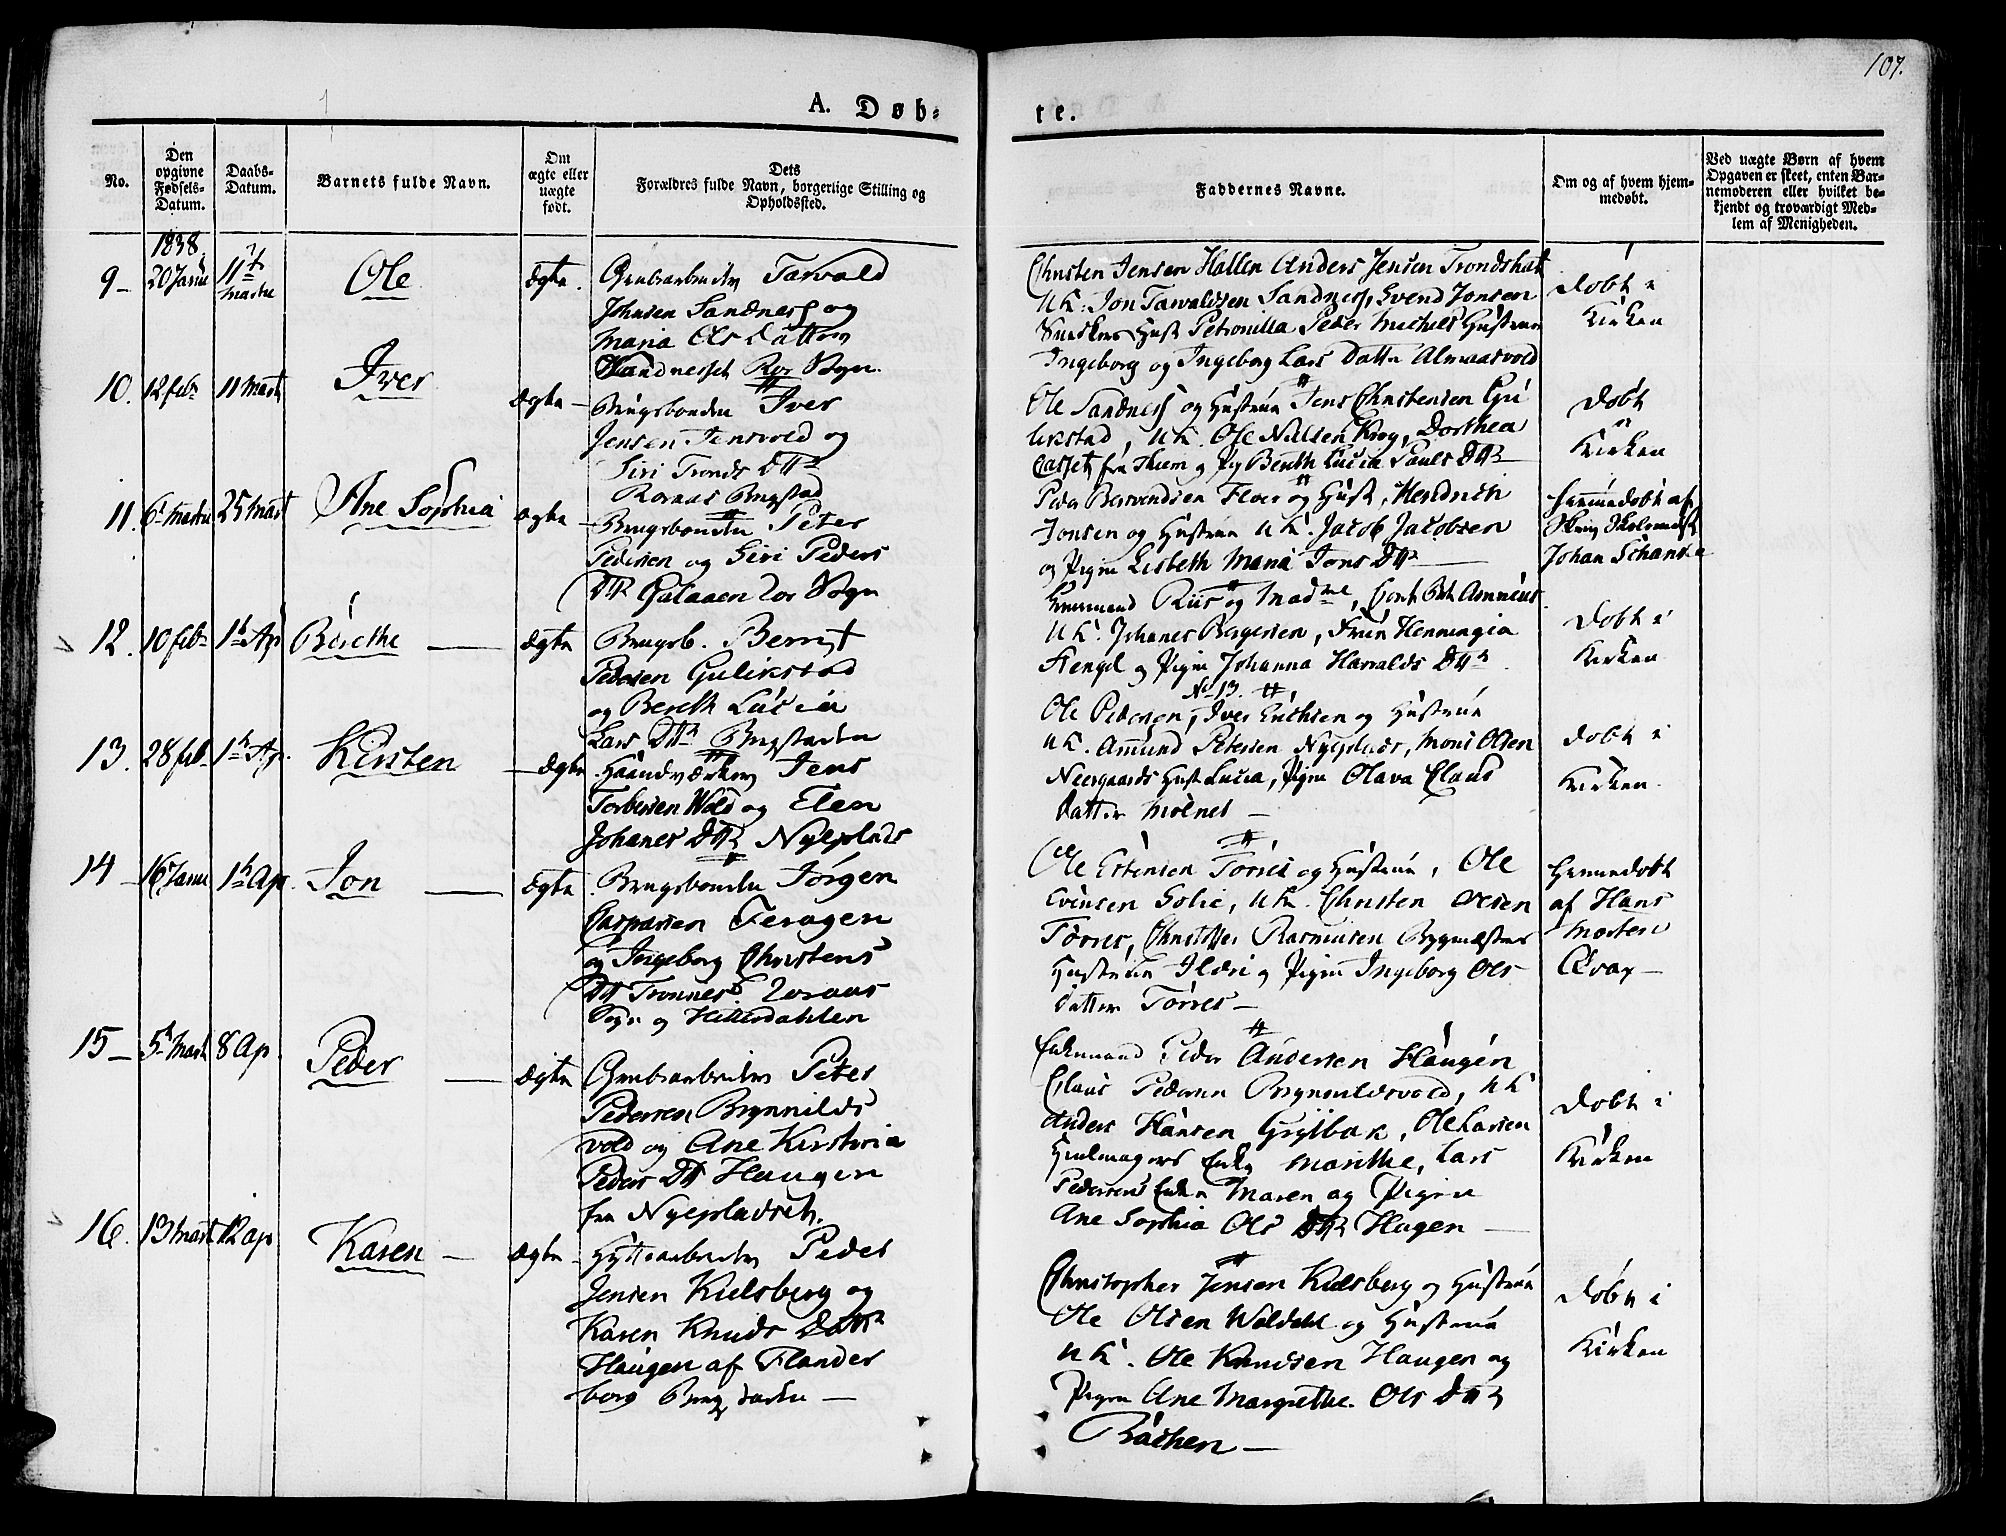 107.
A. Døb-
te.
No.
Den opgivne Fødsels-Datum.
Daabs-Datum.
Barnets fulde Navn.
Om ægte eller uægte født.
Dets
Forældres fulde Navn, borgerlige Stilling og
Opholdssted.
Faddernes Navne.
Om og af hvem hjem-
medøbt.
Ved uægte Børn af hvem
Opgaven er skeet, enten Bar-
nemoderen eller hvilket be-
kjendt og troværdigt Med-
lem af Menigheden.
1838
9 20 Janu 11te Martz Ole Ægte
Grubearbeider Tarvald
Johnsen Sandness og
Maria Ols Datter
Sandnesset Rør Sogn
Christen Jensen Hallen Anders Jensen
UK. Jon Tarvaldsen Sandness, Svend Jonsen
Hust Petronilla Peder Michels Hustrue
Ingeborg og Ingeborg Lars Datter Almaasvold
døbt i
Kirken
10. 12 feb 11 Mart Iver Ægte
Brugsbonden Iver
Jensen Jensvold og
Siri Tronds DTR
Røraas Bergstad
Ole Sandness og Hustrue Jens Christensen Gu
likstad, UK. Ole Nielsen Krog, Dorthea
fra Thiem og Pig Bereth Lucia Pauls DTR
døbt
Kirken
11. 6 Martz 25 Mart Ane Sophia ægte
Brugsbonden Peter
Pedersen og Siri Peders
DTR Galaaen Sogn
Peder Berendsen Floer og Hust, Hendrich
Jonsen og Hustrue UK. Jacob Jacobsen
og Pigen Lisbeth Maria Jons DTR
hjemmedøbt af
Johan Schanke
12. 10 feb 1te Ap Berethe Ægte
Brugsb. Bernt
Pedersen Gulikstad
og Bereth Lucia
Lars DTR Bergstaden
Riis og Madme,
UK. Johanes Bergersen, Frue Henningia
Stengel og Pigen Johanna Haralds DTR
døbt i
Kirken
13. 28 feb 1te Ap. Kirsten Ægte
Haandværker Jens
Torbersen Wold og Elen
Johanes DTR Nyepladse
No 13.
Ole Pedersen, Iver Erichsen og Hustrue
UK. Amund Petersen Nyeplads, Mons Olsen
Neergaards Hust Lucia, Pigen Olava Claus
datter Molnes
døbt i
Kirken
14 16 Janu 1te Ap. Jon Ægte
Brugsbonden Jørgen
Caspersen Feragen
og Ingeborg Christens
DTR Tronnes
Sogn og Hitterdahlen
Ole Estensen Tørres og Hustrue, Ole
Evensen Solie, UK. Christen Olsen
Tørres, Christoffer Rasmusen Bygmæster
Hustrue Ildri og Pigen Ingeborg Ols
datter Tørres
hjemmedøbt
af Hans
Morten
15 5 Mart 8 Ap. Peder Ægte
Grubearbeider Peter
Pedersen Brynnilds
vold og Ane Kirstina
Peders DTR Haugen
fra Nyepladsen.
Enkemand Peder Andersen Haugen
Claus Pedersen Brynnildsvold, UK
Anders Hansen Grytbak, Ole Larsen
Hiulmagers Enke Marithe, Lars
Pedersens Enke Maren og Pigen
Ane Sophia Ols DTR Hagen
døbt i
Kirken
16. 13 Mart 12 ap Karen Ægte
Hyttearbeider Peder
Jensen Kielsberg og
Karen Knuds DatR
Haugen af Flander
borg Bergstaden
Christopher Jensen Kielsberg og Hustrue
Ole Olsen Woldahl og Hustrue
UK. Ole Knudsen Haugen og
Pigen Ane Margrethe. Ols DTR
Rachen
døbt i
Kirken